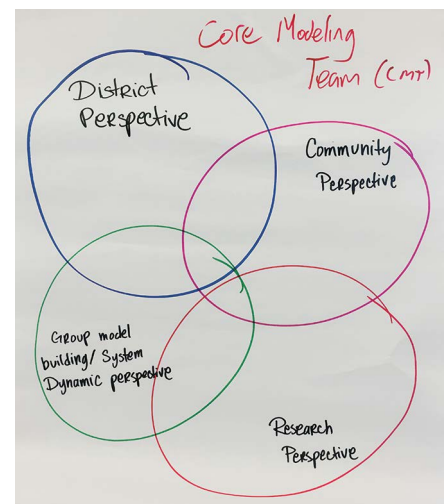 Core Modeling
Team (CMT)
District
Perspective
Community
Perspective
Group model
building/System
Dynamic perspective
Research
Perspective